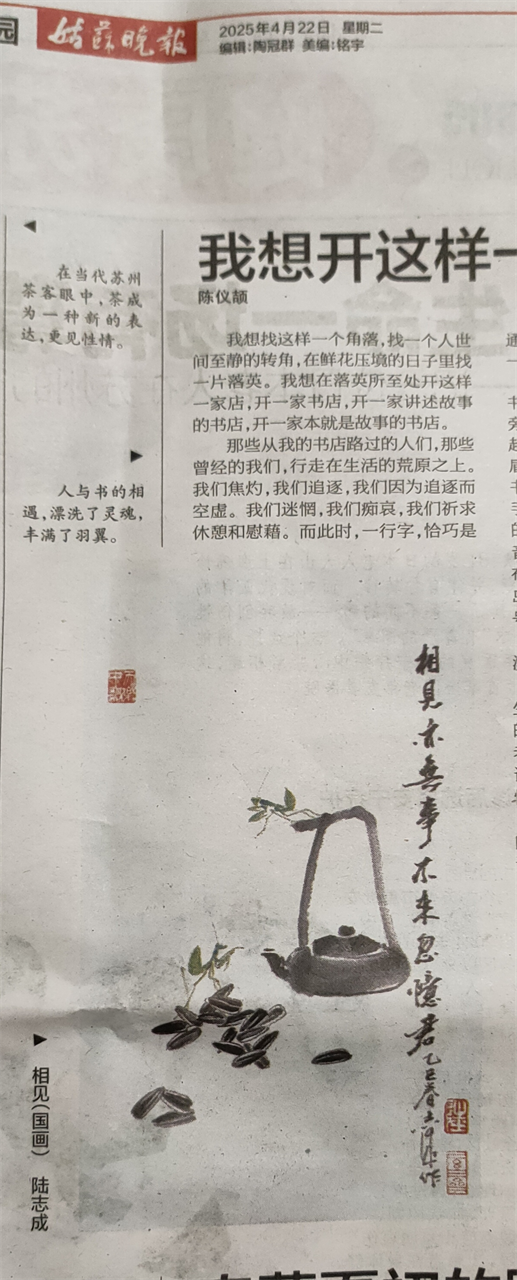 园
姑苏晚报
2025年4月22日 星期二
编辑:陶冠群 美编:铭宇
◀
在当代苏州
茶客眼中,茶成
为一种新的表
达,更见性情。
▶
人与书的相
遇,漂洗了灵魂,
丰满了羽翼。
我想开这样一
陈仪颉
我想找这样一个角落,找一个人世
间至静的转角,在鲜花压境的日子里找
一片落英。我想在落英所至处开这样
一家店,开一家书店,开一家讲述故事
的书店,开一家本就是故事的书店。
那些从我的书店路过的人们,那些
曾经的我们,行走在生活的荒原之上。
我们焦灼,我们追逐,我们因为追逐而
空虚。我们迷惘,我们痴哀,我们祈求
休憩和慰藉。而此时,一行字,恰巧是
相见亦无事不来忽忆君
乙巳春
作
▶ 相见(国画) 陆志成